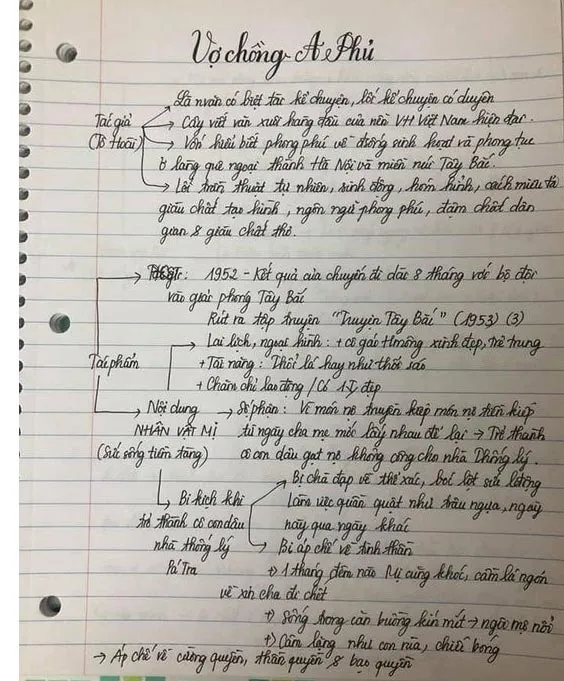 Vợ chồng A Phủ
Là nvăn có biệt tài kể chuyện, lối kể chuyện có duyên
Tác giả
(Tô Hoài)
Cây viết văn xuôi hàng đầu của nền VH Việt Nam hiện đại.
Vốn hiểu biết phong phú về đ/sống sinh hoạt và phong tục
ở làng quê ngoại thành Hà Nội và miền núi Tây Bắc.
Lối trần thuật tự nhiên, sinh động, hóm hỉnh, cách miêu tả
giàu chất tạo hình, ngôn ngữ phong phú, đậm chất dân
gian & giàu chất thơ.
1952 - Kết quả của chuyến đi dài 8 tháng với bộ đội
vào giải phóng Tây Bắc
Rút ra tập truyện "Truyện Tây Bắc" (1953) (3)
Tác phẩm
Lai lịch, ngoại hình: + cô gái H'mông xinh đẹp, trẻ trung
+ Tài năng: Thổi lá hay như thổi sáo
+ Chăm chỉ lao động / Có T.Y đẹp
Nội dung → Số phận: Vì món nợ truyền kiếp món nợ tiền kiếp
NHÂN VẬT MỊ từ ngày cha mẹ mới lấy nhau để lại → Trở thành
(Sức sống tiềm tàng) cô con dâu gạt nợ không công cho nhà Thống lý.
Bị chà đạp về thể xác, bóc lột sức lđộng
Bi kịch khi Làm việc quần quật như trâu ngựa, ngày
trở thành cô con dâu này qua ngày khác
nhà thống lý Bị áp chế về tinh thần
Pá Tra +) 1 tháng đêm nào Mị cũng khóc, cầm lá ngón
về xin cha đi chết
+) Sống trong căn buồng kín mít →
+) Câm lặng như con rùa, chiếc bóng
→ Áp chế về cường quyền, thần quyền & bạo quyền